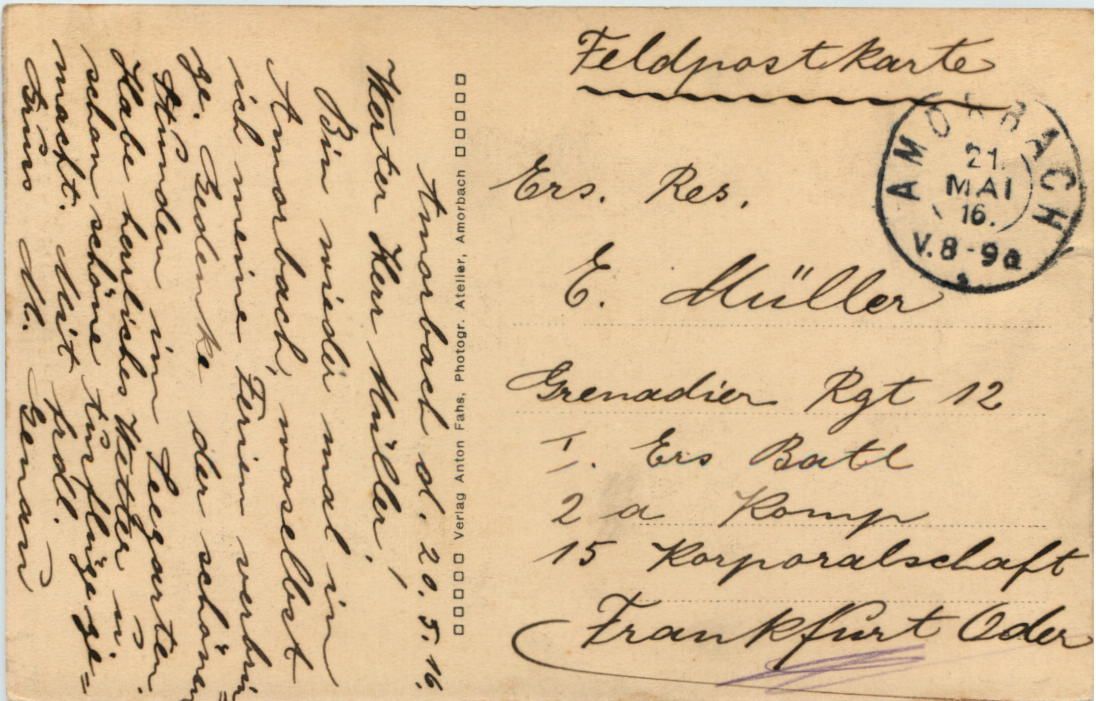 Feldpostkarte
AMORBACH
21.
MAI
16.
V.8-9a
Ers. Res.
E. Müller
Grenadier Rgt 12
I. Ers Batl
2 a Komp
15 Korporalschaft
Frankfurt Oder
Verlag Anton Fahs, Photogr. Atelier, Amorbach
Amorbach d. 20.5.16
Werter Herr Müller!
Bin wieder mal in
Amorbach, woselbst
ich meine Ferien verbrin=
ge. Gedenke der schönen
Stunden im Seegarten.
Habe herrliches Wetter u.
schon schöne Ausflüge ge=
macht. Mit frdl.
Gruss M.